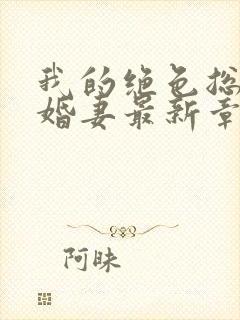 我的绝色总
婚妻最新章
阿昧